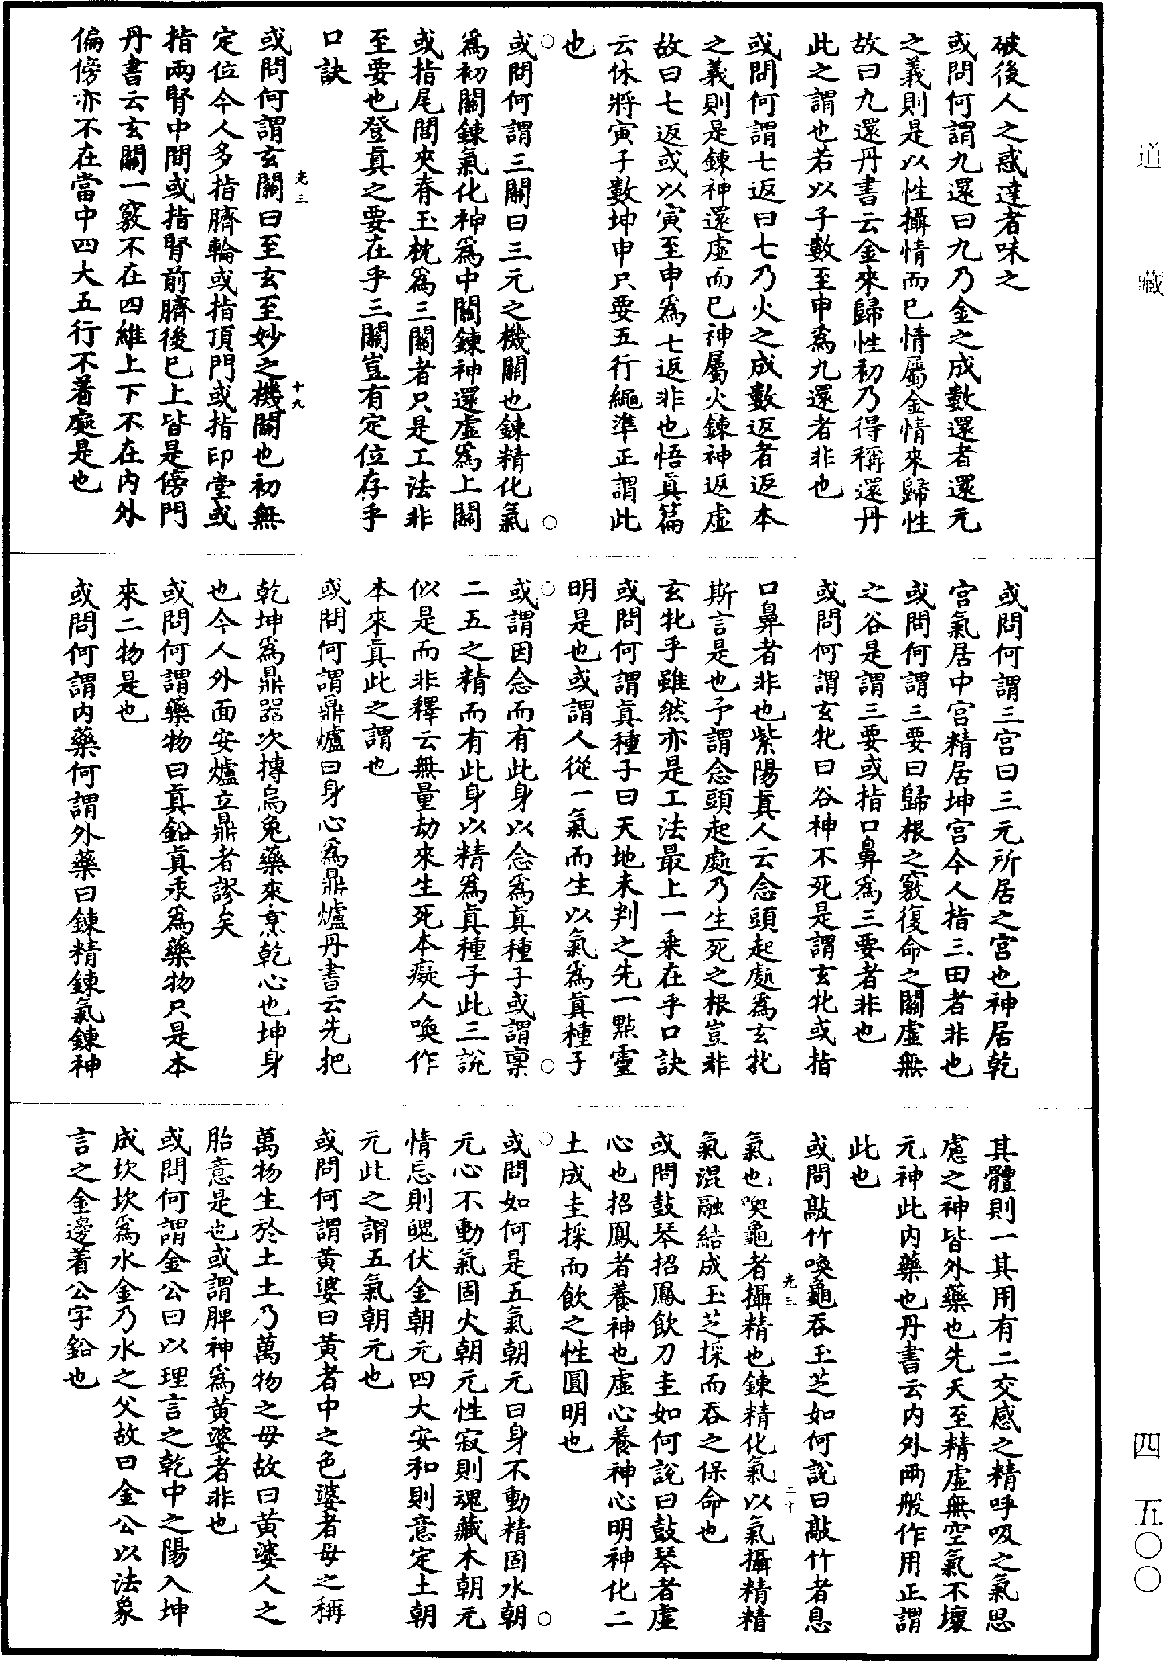 道藏
四 五〇〇
破後人之惑達者味之
或問何謂九還曰九乃金之成數還者還元
之義則是以性攝情而已情屬金情來歸性
故曰九還丹書云金來歸性初乃得稱還丹
此之謂也若以子數至申爲九還者非也
或問何謂七返曰七乃火之成數返者返本
之義則是鍊神還虛而已神屬火鍊神返虛
故曰七返或以寅至申爲七返非也悟眞篇
云休將寅子數坤申只要五行繩準正謂此
也
或問何謂三關曰三元之機關也鍊精化氣
爲初關鍊氣化神爲中關鍊神還虛爲上關
或指尾閭夾脊玉枕爲三關者只是工法非
至要也登眞之要在乎三關豈有定位存乎
口訣
光三 十九
或問何謂玄關曰至玄至妙之機關也初無
定位今人多指臍輪或指頂門或指印堂或
指兩腎中間或指腎前臍後已上皆是傍門
丹書云玄關一竅不在四維上下不在内外
偏傍亦不在當中四大五行不著處是也
或問何謂三宮曰三元所居之宮也神居乾
宮氣居中宮精居坤宮今人指三田者非也
或問何謂三要曰歸根之竅復命之關虛無
之谷是謂三要或指口鼻爲三要者非也
或問何謂玄牝曰谷神不死是謂玄牝或指
口鼻者非也紫陽眞人云念頭起處爲玄牝
斯言是也予謂念頭起處乃生死之根豈非
玄牝乎雖然亦是工法最上一乘在乎口訣
或問何謂眞種子曰天地未判之先一點靈
明是也或謂人從一氣而生以氣爲眞種子
或謂因念而有此身以念爲眞種子或謂稟
二五之精而有此身以精爲眞種子此三說
似是而非釋云無量劫來生死本癡人喚作
本來眞此之謂也
或問何謂鼎爐曰身心爲鼎爐丹書云先把
乾坤爲鼎器次摶烏兔藥來烹乾心也坤身
也今人外面安爐立鼎者謬矣
或問何謂藥物曰眞鉛眞汞爲藥物只是本
來二物是也
或問何謂内藥何謂外藥曰鍊精鍊氣鍊神
其體則一其用有二交感之精呼吸之氣思
慮之神皆外藥也先天至精虛無空氣不壞
元神此内藥也丹書云内外兩般作用正謂
此也
或問敲竹喚龜吞玉芝如何說曰敲竹者息
氣也喚龜者攝精也鍊精化氣以氣攝精精
光三 二十
氣混融結成玉芝採而吞之保命也
或問鼓琴招鳳飲刀圭如何說曰鼓琴者虛
心也招鳳者養神也虛心養神心明神化二
土成圭採而飲之性圓明也
或問如何是五氣朝元曰身不動精固水朝
元心不動氣固火朝元性寂則魂藏木朝元
情忘則魄伏金朝元四大安和則意定土朝
元此之謂五氣朝元也
或問何謂黃婆曰黃者中之色婆者母之稱
萬物生於土土乃萬物之母故曰黃婆人之
胎意是也或謂脾神爲黃婆者非也
或問何謂金公曰以理言之乾中之陽入坤
成坎坎爲水金乃水之父故曰金公以法象
言之金邊著公字鉛也